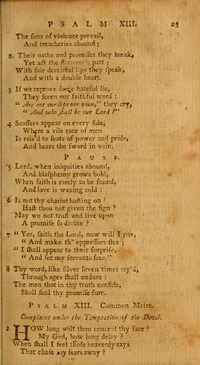 PSALM XIII. 23
The sons of violence prevail,
And treacheries abound;
2. Their oaths and promises they break,
Yet act the flatterer's part;
With fair deceitful lips they speak,
And with a double heart.
3 If we reprove some hateful lie,
They scorn our faithful word:
"Are not our lips our own," they cry,
"And who shall be our Lord?"
4 Scoffers appear on every side,
Where a vile race of men
Is rais'd to seats of power and pride,
And bears the sword in vain.
PAUSE.
5 Lord, when iniquities abound,
And blasphemy grows bold,
When faith is rarely to be found,
And love is waxing cold:
6 Is not thy chariot hasting on?
Hast thou not given the sign?
May we not trust and live upon
A promise so divine?
7 "Yes, saith the Lord, now will I rise,
"And make th' oppressors flee;
"I shall appear to their surprise,
"And set my servants free."
8 Thy word, like silver seven times try'd,
Through ages shall endure:
The men that in thy truth confide,
Shall find thy promise sure.
PSALM XIII. Common Metre.
Complaint under the Temptation of the Devil.
HOW long wilt thou conceal thy face?
My God, how long delay?
When shall I feel those heavenly rays
That chase my fears away?